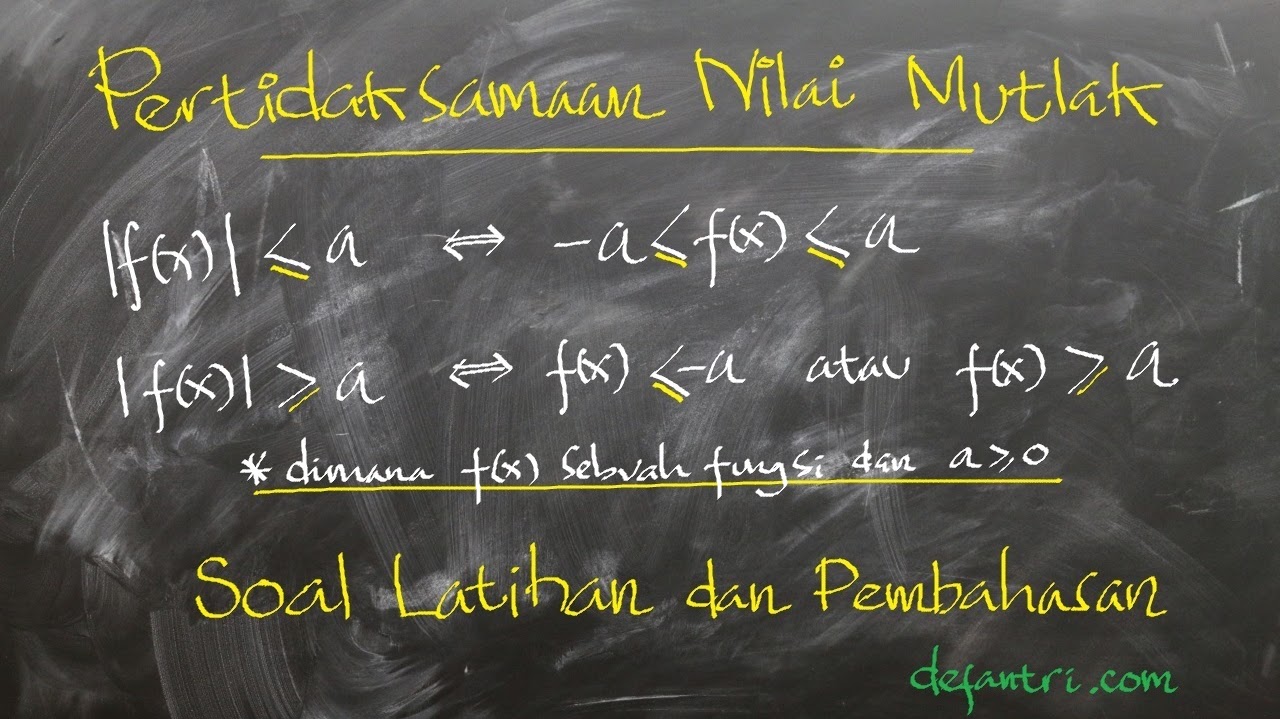 Pertidaksamaan Nilai Mutlak
|f(x)| ≤ a ⇔ -a ≤ f(x) ≤ a
|f(x)| ≥ a ⇔ f(x) ≤ -a atau f(x) ≥ a
* dimana f(x) sebuah fungsi dan a ≥ 0
Soal Latihan dan Pembahasan
defantri.com